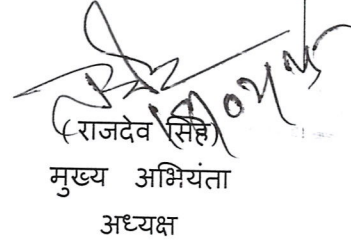 (राजदेव सिंह)
मुख्य अभियंता
अध्यक्ष